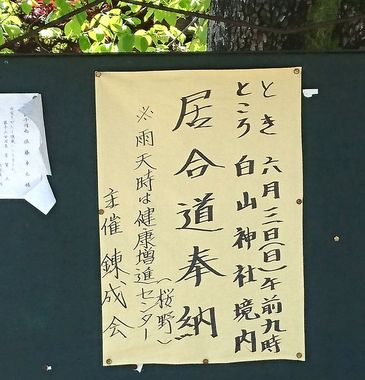 とき 六月三日(日)午前九時
ところ 白山神社境内
居合道奉納
※雨天時は健康増進センター
(桜野)
主催 錬成会